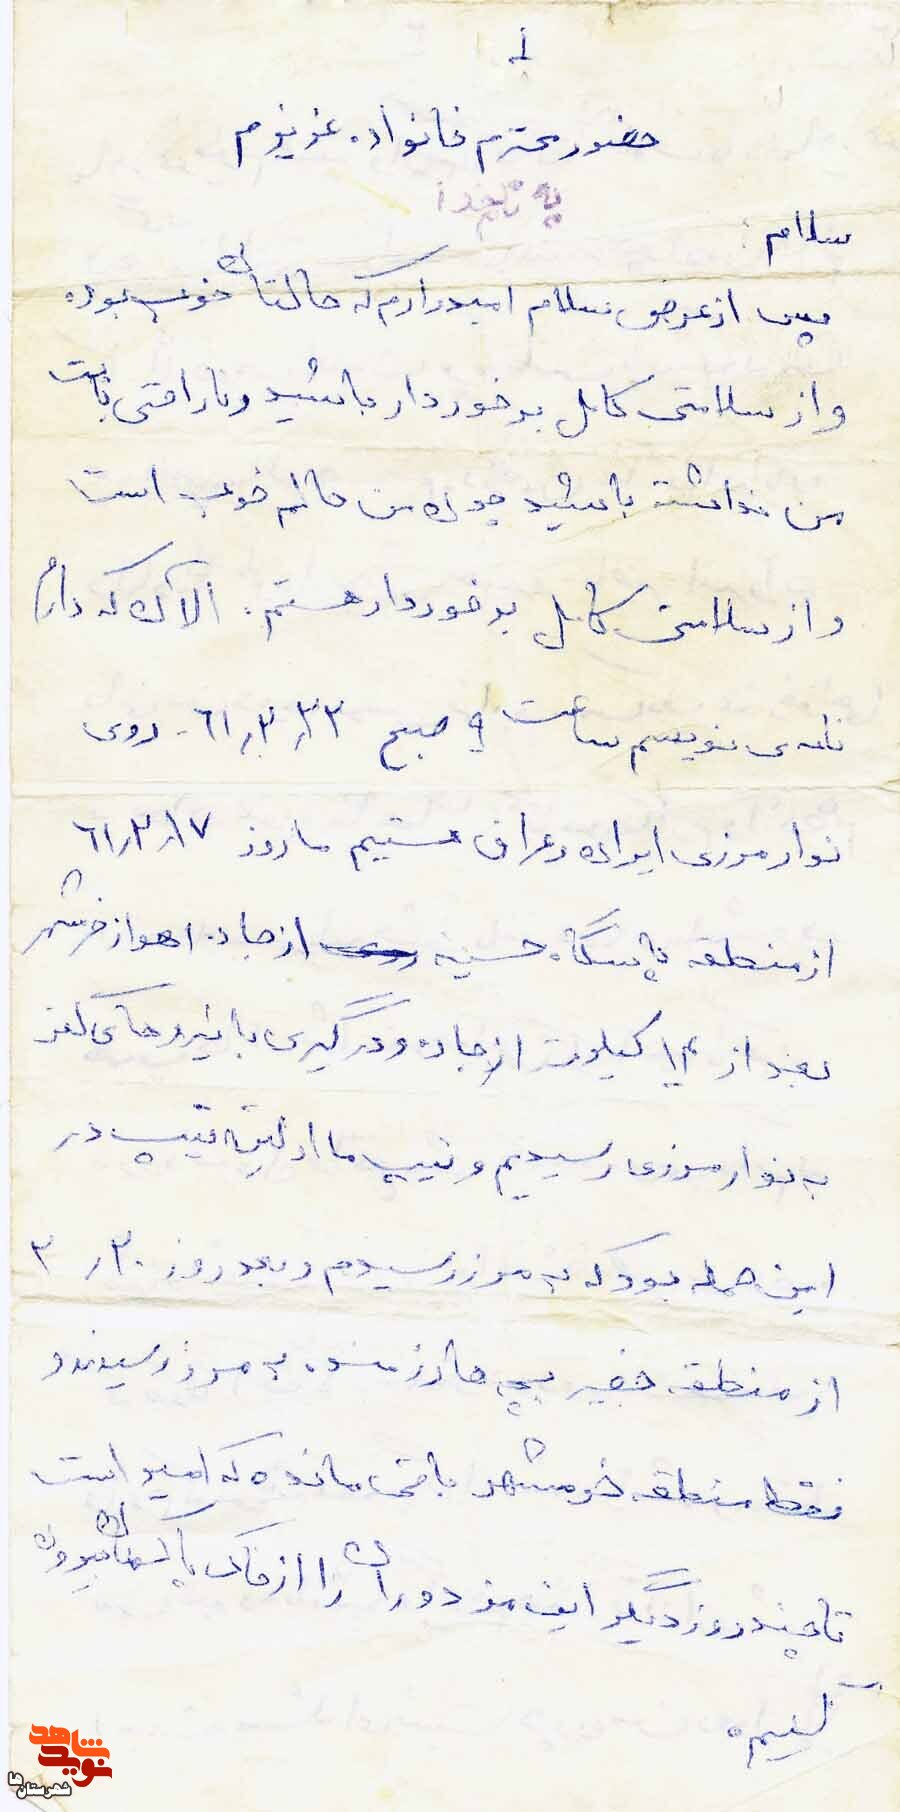 حضور محترم خانواده عزیزم
به نام خدا
سلام :
پس از عرض سلام امیدوارم که حالتان خوب بوده
و از سلامتی کامل برخوردار باشید و ناراحتی بابت
من نداشته باشید چون من حالم خوب است
و از سلامتی کامل برخوردار هستم. الآن که دارم
نامه می نویسم ساعت ۹ صبح ۶۱٫۲٫۲۳ - روی
نوار مرزی ایران و عراق هستیم ما روز ۶۱٫۲٫۱۷
از منطقه پاسگاه حسینیه از جاده اهواز خرمشهر
بعد از ۱۴ کیلومتر از جاده و درگیری با نیروهای کفر
به نوار مرزی رسیدیم و تیپ ما اولین تیپ در
این حمله بود که به مرز رسیدم و بعد روز ۲۰٫ ۲
از منطقه جفیر بچه ها رزمنده به مرز رسیدند و
فقط منطقه خرمشهر باقی مانده که امید است
تا چند روز دیگر این مزدوران را از خاک پاکمان بیرون
کنیم.
شاهد
نوید
شهرستان ها